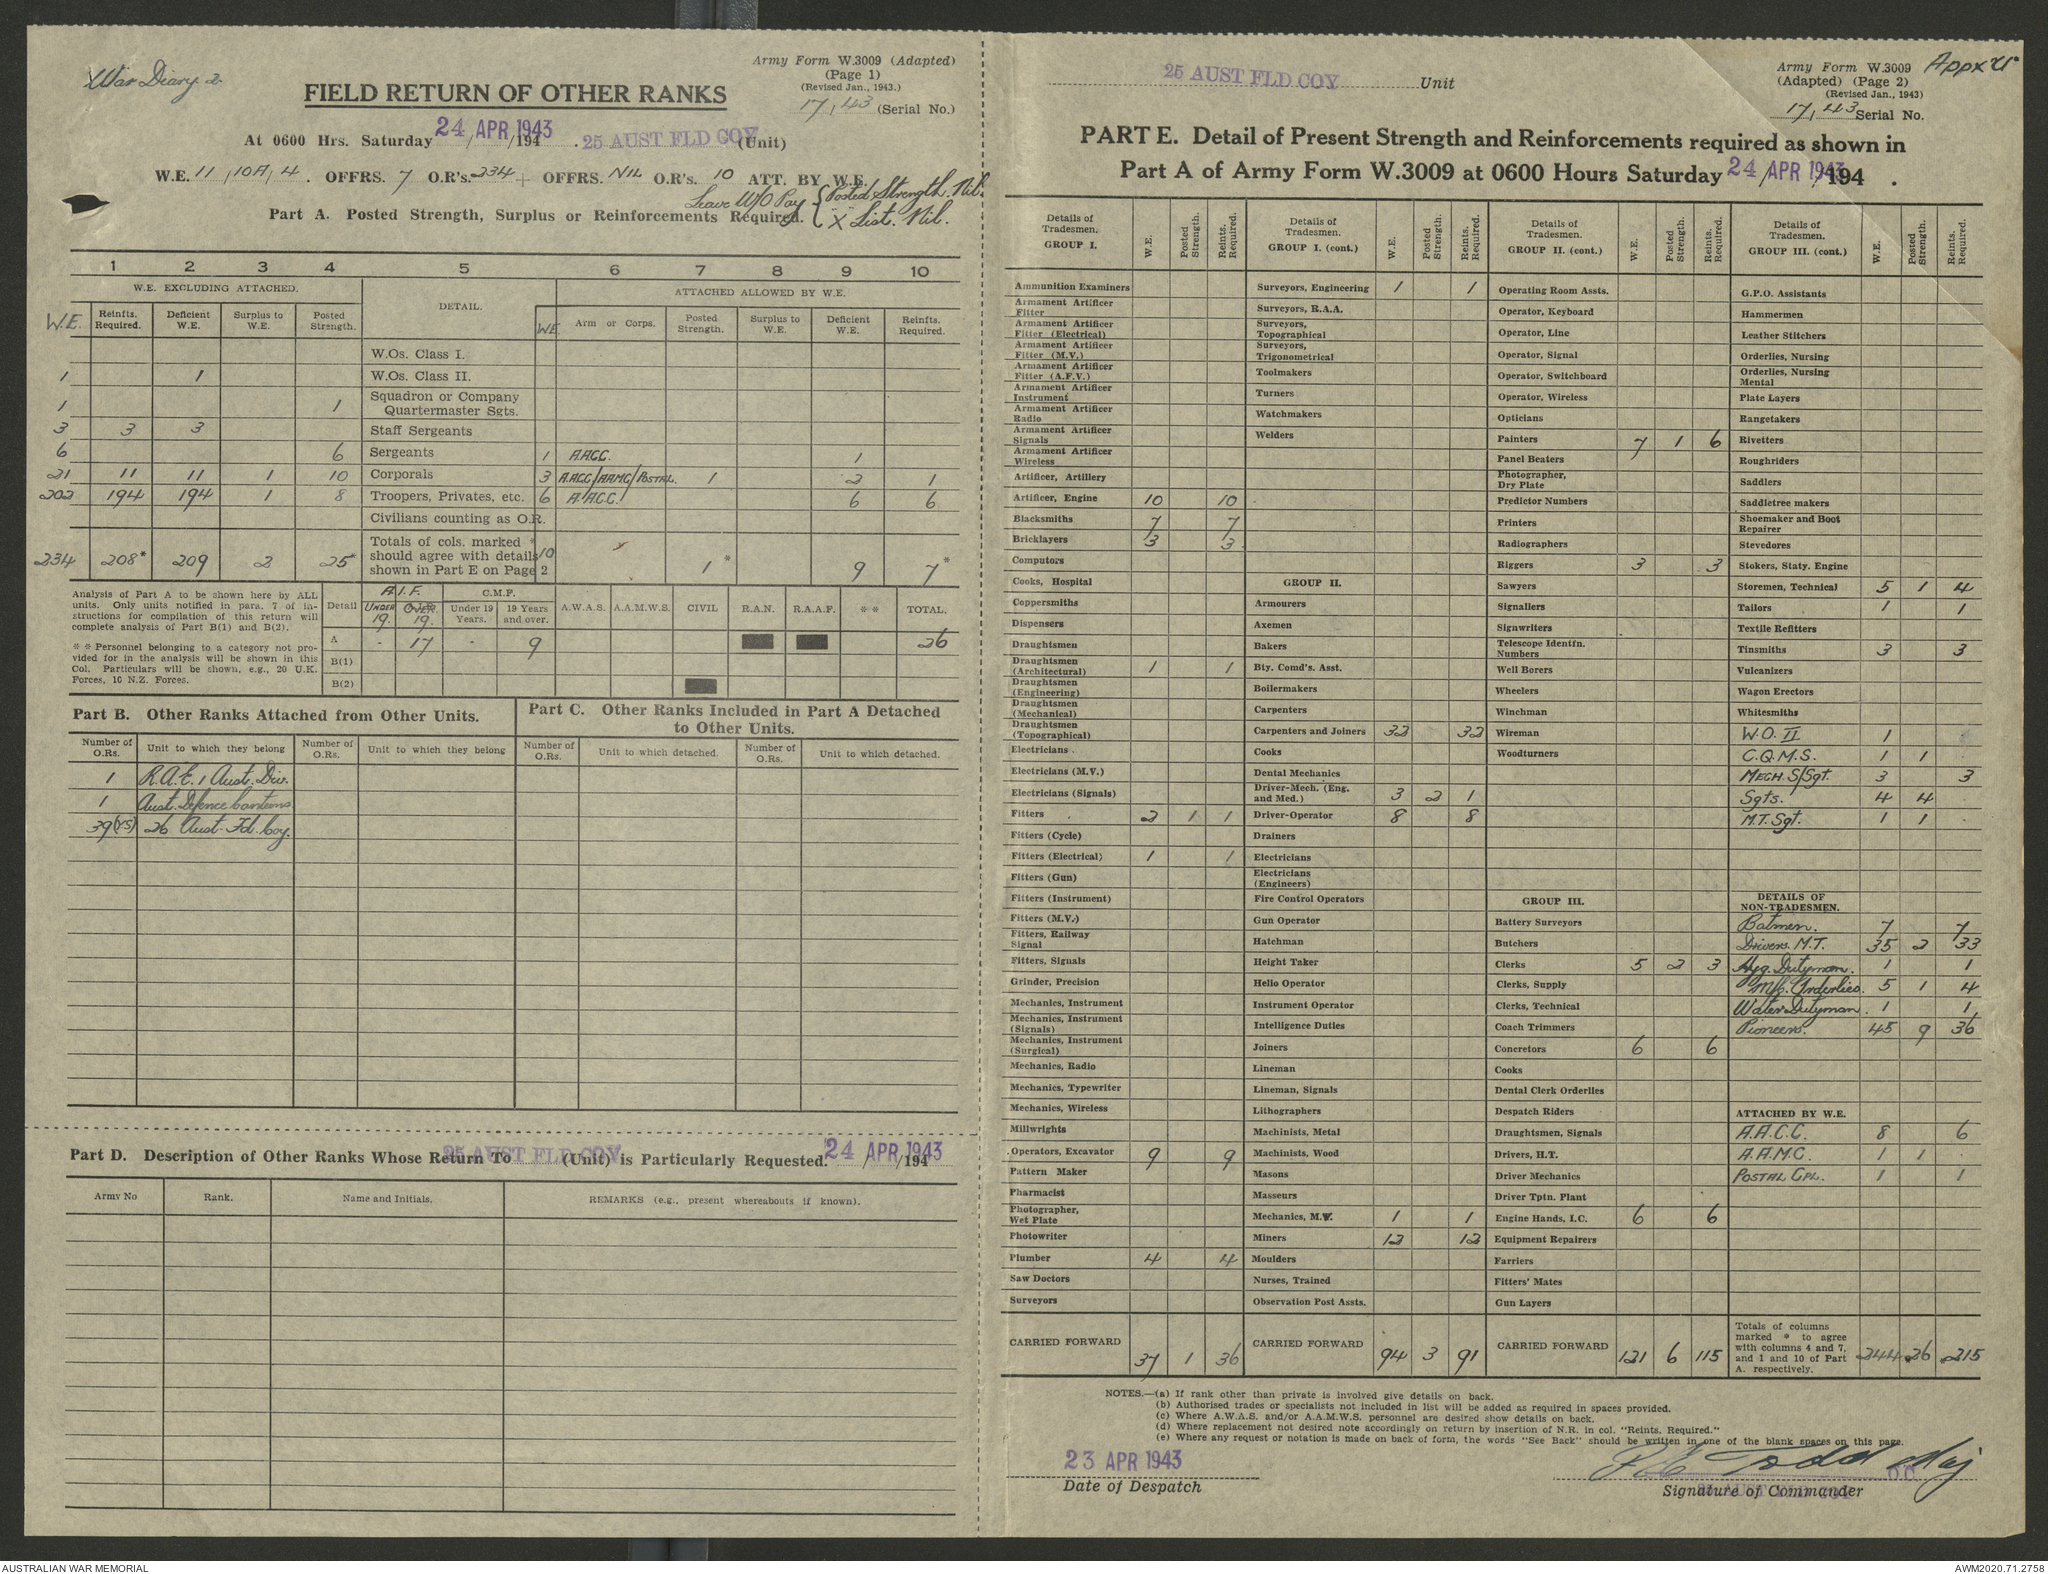 War Diary 2.
Army Form W.3009 (Adapted)
(Page 1)
(Revised Jan., 1943.)
17/43 (Serial No.)
FIELD RETURN OF OTHER RANKS
At 0600 Hrs. Saturday 24 APR 1943 /194 . 25 AUST FLD COY (Unit)
W.E. 11/10A/4. OFFRS. 7 O.R's. 234 + OFFRS. NIL O.R's. 10 ATT. BY W.E.
Leave W/O Pay { Posted Strength Nil.
X List. Nil.
Part A. Posted Strength, Surplus or Reinforcements Required.
1 2 3 4 5 6 7 8 9 10
W.E. EXCLUDING ATTACHED. DETAIL. ATTACHED ALLOWED BY W.E.
W.E. Reinfts. Required. Deficient W.E. Surplus to W.E. Posted Strength. W.E. Arm or Corps. Posted Strength. Surplus to W.E. Deficient W.E. Reinfts. Required.
W.Os. Class I.
1 1 W.Os. Class II.
1 1 Squadron or Company Quartermaster Sgts.
3 3 3 Staff Sergeants
6 6 Sergeants 1 A.A.C.C. 1
21 11 11 1 10 Corporals 3 A.A.C.C/AAMC/POSTAL. 1 2 1
202 194 194 1 8 Troopers, Privates, etc. 6 A.A.C.C. 6 6
Civilians counting as O.R.
234 208* 209 2 25* Totals of cols. marked * should agree with details shown in Part E on Page 2 10 1* 9 7*
Analysis of Part A to be shown here by ALL
units. Only units notified in para. 7 of in-
structions for compilation of this return will
complete analysis of Part B(1) and B(2).
* * Personnel belonging to a category not pro-
vided for in the analysis will be shown in this
Col. Particulars will be shown, e.g., 20 U.K.
Forces, 10 N.Z. Forces.
Detail A.I.F. C.M.F. A.W.A.S. A.A.M.W.S. CIVIL R.A.N. R.A.A.F. * * TOTAL.
UNDER 19. OVER 19. Under 19 Years. 19 Years and over.
A - 17 - 9 26
B(1)
B(2)
Part B. Other Ranks Attached from Other Units.
Part C. Other Ranks Included in Part A Detached
to Other Units.
Number of O.Rs. Unit to which they belong Number of O.Rs. Unit to which they belong Number of O.Rs. Unit to which detached. Number of O.Rs. Unit to which detached.
1 R.A.E. 1 Aust. Div.
1 Aust. Defence Canteens
39 (YS) 26 Aust. Fd. Coy.
Part D. Description of Other Ranks Whose Return To 25 AUST FLD COY (Unit) is Particularly Requested. 24 APR 1943 /194
Army No Rank. Name and Initials. REMARKS (e.g., present whereabouts if known).
25 AUST FLD COY Unit
Army Form W.3009
(Adapted) (Page 2)
(Revised Jan., 1943)
17/43 Serial No.
PART E. Detail of Present Strength and Reinforcements required as shown in
Part A of Army Form W.3009 at 0600 Hours Saturday 24 APR 1943 /194 .
Details of Tradesmen. GROUP I. W.E. Posted Strength. Reints. Required.
Ammunition Examiners
Armament Artificer Fitter
Armament Artificer Fitter (Electrical)
Armament Artificer Fitter (M.V.)
Armament Artificer Fitter (A.F.V.)
Armament Artificer Instrument
Armament Artificer Radio
Armament Artificer Signals
Armament Artificer Wireless
Artificer, Artillery
Artificer, Engine 10 10
Blacksmiths 7 7
Bricklayers 3 3
Computors
Cooks, Hospital
Coppersmiths
Dispensers
Draughtsmen
Draughtsmen (Architectural) 1 1
Draughtsmen (Engineering)
Draughtsmen (Mechanical)
Draughtsmen (Topographical)
Electricians
Electricians (M.V.)
Electricians (Signals)
Fitters 2 1 1
Fitters (Cycle)
Fitters (Electrical) 1 1
Fitters (Gun)
Fitters (Instrument)
Fitters (M.V.)
Fitters, Railway Signal
Fitters, Signals
Grinder, Precision
Mechanics, Instrument
Mechanics, Instrument (Signals)
Mechanics, Instrument (Surgical)
Mechanics, Radio
Mechanics, Typewriter
Mechanics, Wireless
Millwrights
Operators, Excavator 9 9
Pattern Maker
Pharmacist
Photographer, Wet Plate
Photowriter
Plumber 4 4
Saw Doctors
Surveyors
CARRIED FORWARD 37 1 36
Details of Tradesmen. GROUP I. (cont.) W.E. Posted Strength. Reints. Required.
Surveyors, Engineering 1 1
Surveyors, R.A.A.
Surveyors, Topographical
Surveyors, Trigonometrical
Toolmakers
Turners
Watchmakers
Welders
GROUP II.
Armourers
Axemen
Bakers
Bty. Comd's. Asst.
Boilermakers
Carpenters
Carpenters and Joiners 32 32
Cooks
Dental Mechanics
Driver-Mech. (Eng. and Med.) 3 2 1
Driver-Operator 8 8
Drainers
Electricians
Electricians (Engineers)
Fire Control Operators
Gun Operator
Hatchman
Height Taker
Helio Operator
Instrument Operator
Intelligence Duties
Joiners
Lineman
Lineman, Signals
Lithographers
Machinists, Metal
Machinists, Wood
Masons
Masseurs
Mechanics, M.V. 1 1
Miners 12 12
Moulders
Nurses, Trained
Observation Post Assts.
CARRIED FORWARD 94 3 91
Details of Tradesmen. GROUP II. (cont.) W.E. Posted Strength. Reints. Required.
Operating Room Assts.
Operator, Keyboard
Operator, Line
Operator, Signal
Operator, Switchboard
Operator, Wireless
Opticians
Painters 7 1 6
Panel Beaters
Photographer, Dry Plate
Predictor Numbers
Printers
Radiographers
Riggers 3 3
Sawyers
Signallers
Signwriters
Telescope Identfn. Numbers
Well Borers
Wheelers
Winchman
Wireman
Woodturners
GROUP III.
Battery Surveyors
Butchers
Clerks 5 2 3
Clerks, Supply
Clerks, Technical
Coach Trimmers
Concretors 6 6
Cooks
Dental Clerk Orderlies
Despatch Riders
Draughtsmen, Signals
Drivers, H.T.
Driver Mechanics
Driver Tptn. Plant
Engine Hands, I.C. 6 6
Equipment Repairers
Farriers
Fitters' Mates
Gun Layers
CARRIED FORWARD 121 6 115
Details of Tradesmen. GROUP III. (cont.) W.E. Posted Strength. Reints. Required.
G.P.O. Assistants
Hammermen
Leather Stitchers
Orderlies, Nursing
Orderlies, Nursing Mental
Plate Layers
Rangetakers
Rivetters
Roughriders
Saddlers
Saddletree makers
Shoemaker and Boot Repairer
Stevedores
Stokers, Staty. Engine
Storemen, Technical 5 1 4
Tailors 1 1
Textile Refitters
Tinsmiths 3 3
Vulcanizers
Wagon Erectors
Whitesmiths
W.O. II 1
C.Q.M.S. 1 1
MECH. S/Sgt. 3 3
Sgts. 4 4
M.T. Sgt. 1 1
DETAILS OF NON-TRADESMEN.
Batmen. 7 7
Drivers. M.T. 35 2 33
Hyg. Dutyman. 1 1
Orderlies. 5 1 4
Water Dutyman. 1 1
Pioneers. 45 9 36
ATTACHED BY W.E.
A.A.C.C. 8 6
A.A.M.C. 1 1
POSTAL CPL. 1 1
Totals of columns marked * to agree with columns 4 and 7, and 1 and 10 of Part A. respectively. 244 *26 *215
NOTES.—(a) If rank other than private is involved give details on back.
(b) Authorised trades or specialists not included in list will be added as required in spaces provided.
(c) Where A.W.A.S. and/or A.A.M.W.S. personnel are desired show details on back.
(d) Where replacement not desired note accordingly on return by insertion of N.R. in col. "Reints. Required."
(e) Where any request or notation is made on back of form, the words "See Back" should be written in one of the blank spaces on this page.
23 APR 1943
Date of Despatch
Todd Maj
O.C.
Signature of Commander
AUSTRALIAN WAR MEMORIAL
AWM2020.71.2758